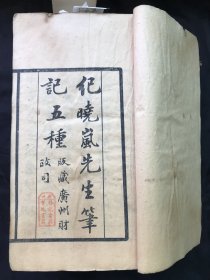 紀曉嵐先生筆
記五種
版藏廣州財
政司